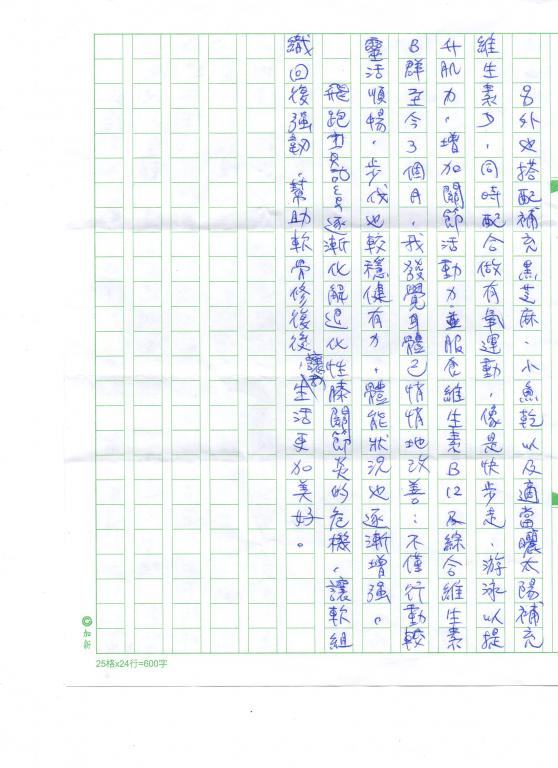 另外也搭配補充黑芝麻、小魚乾以及適當曬太陽補充
維生素D,同時配合做有氧運動,像是快步走、游泳以提
升肌力,增加關節活動力,並服食維生素B12及綜合維生素
B群至今3個月,我發覺身體已悄悄地改善:不僅行動較
靈活順暢,步伐也較穩健有力,體能狀況也逐漸增強。
飛跑 逐漸化解退化性膝關節炎的危機,讓軟組
織回復強韌,幫助軟骨修復後,讓我生活更加美好。
加新
25格x24行=600字